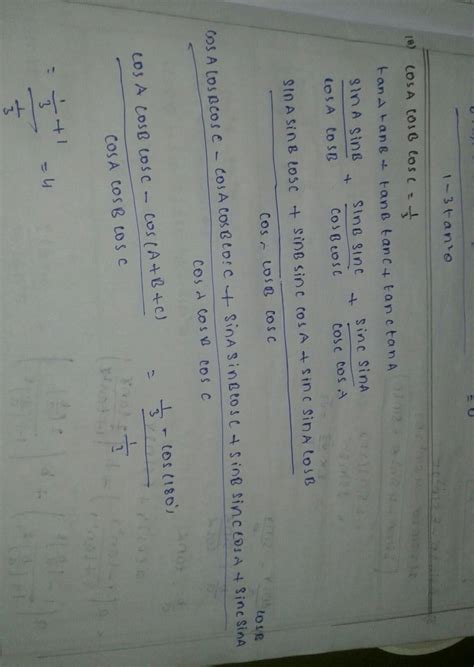 1-3tan²θ
= 0
(18) cosA cosB cosC = 1/3
tanA tanB + tanB tanC + tanC tanA
sinA sinB / cosA cosB + sinB sinC / cosB cosC + sinC sinA / cosC cosA
sinA sinB cosC + sinB sinC cosA + sinC sinA cosB / cosA cosB cosC
cosA cosB cosC - cosA cosB cosC + sinA sinB cosC + sinB sinC cosA + sinC sinA cosB / cosA cosB cosC
cosA cosB cosC - cos(A+B+C) / cosA cosB cosC = 1/3 - cos(180°) / 1/3
= 1/3 + 1 / 1/3 = 4